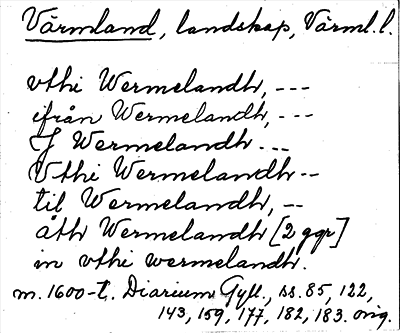 Värmland, landskap, Värml. l.
vthi Wermelandh, ---
ifrån Wermelandh, ---
J Wermelandh ---
Vthi Wermelandh --
til Wermelandh, --
åth Wermelandh [2 ggr]
in vthi wermelandh.
m. 1600-t. Diarium Gyll., ss. 85, 122,
143, 159, 177, 182, 183. orig.